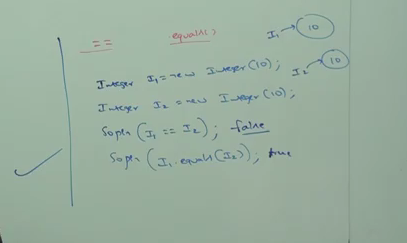 == equals()
I1 → 10
I2 → 10
Integer I1 = new Integer(10);
Integer I2 = new Integer(10);
Sopln (I1 == I2); false
Sopln (I1.equals(I2)); true